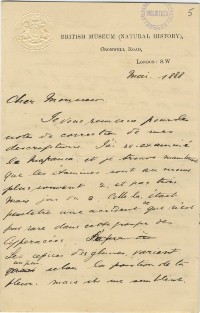 5
BRITISH MUSEUM (NATURAL HISTORY),
CROMWELL ROAD,
LONDON: S.W
Mai. 1888
Cher Monsieur
Je vous remercie pour la
note de correction de mes
descriptions. J'ai re-examiné
la et je trouve maintenant
que les étamines sont au moins
plus souvent 2, et pas trois
mais j'ai vu 3. Cella était
peut-être une accident que n'est
pas rare dans cette groupe des
Cyperacées.
Les épices des glumes varient
un peu selon la position de la
fleur. mais ils me semblent